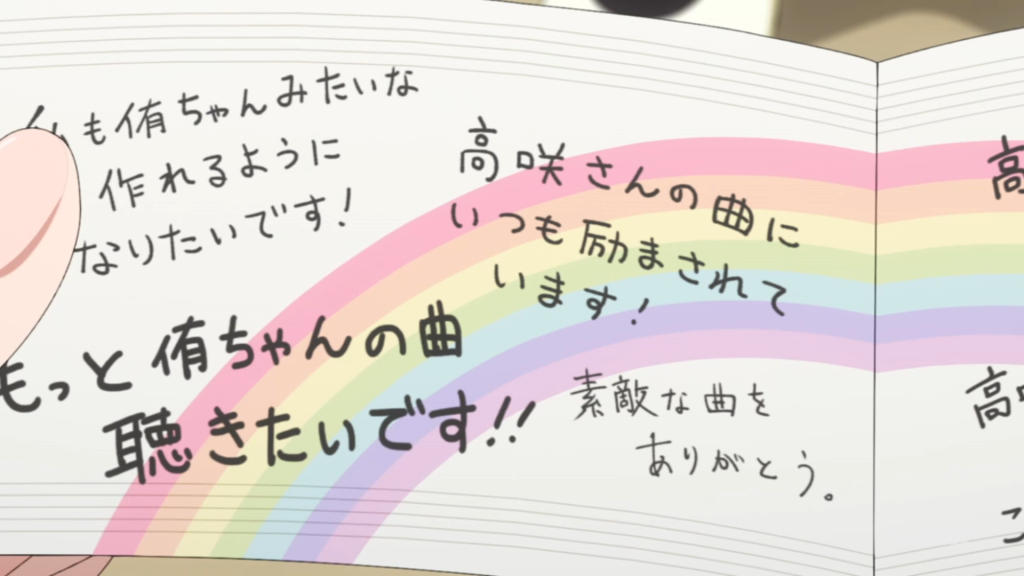 も侑ちゃんみたいな
作れるように
なりたいです!
高咲さんの曲に
いつも励まされて
います!
もっと侑ちゃんの曲
聴きたいです!!
素敵な曲を
ありがとう。
高
高
こ